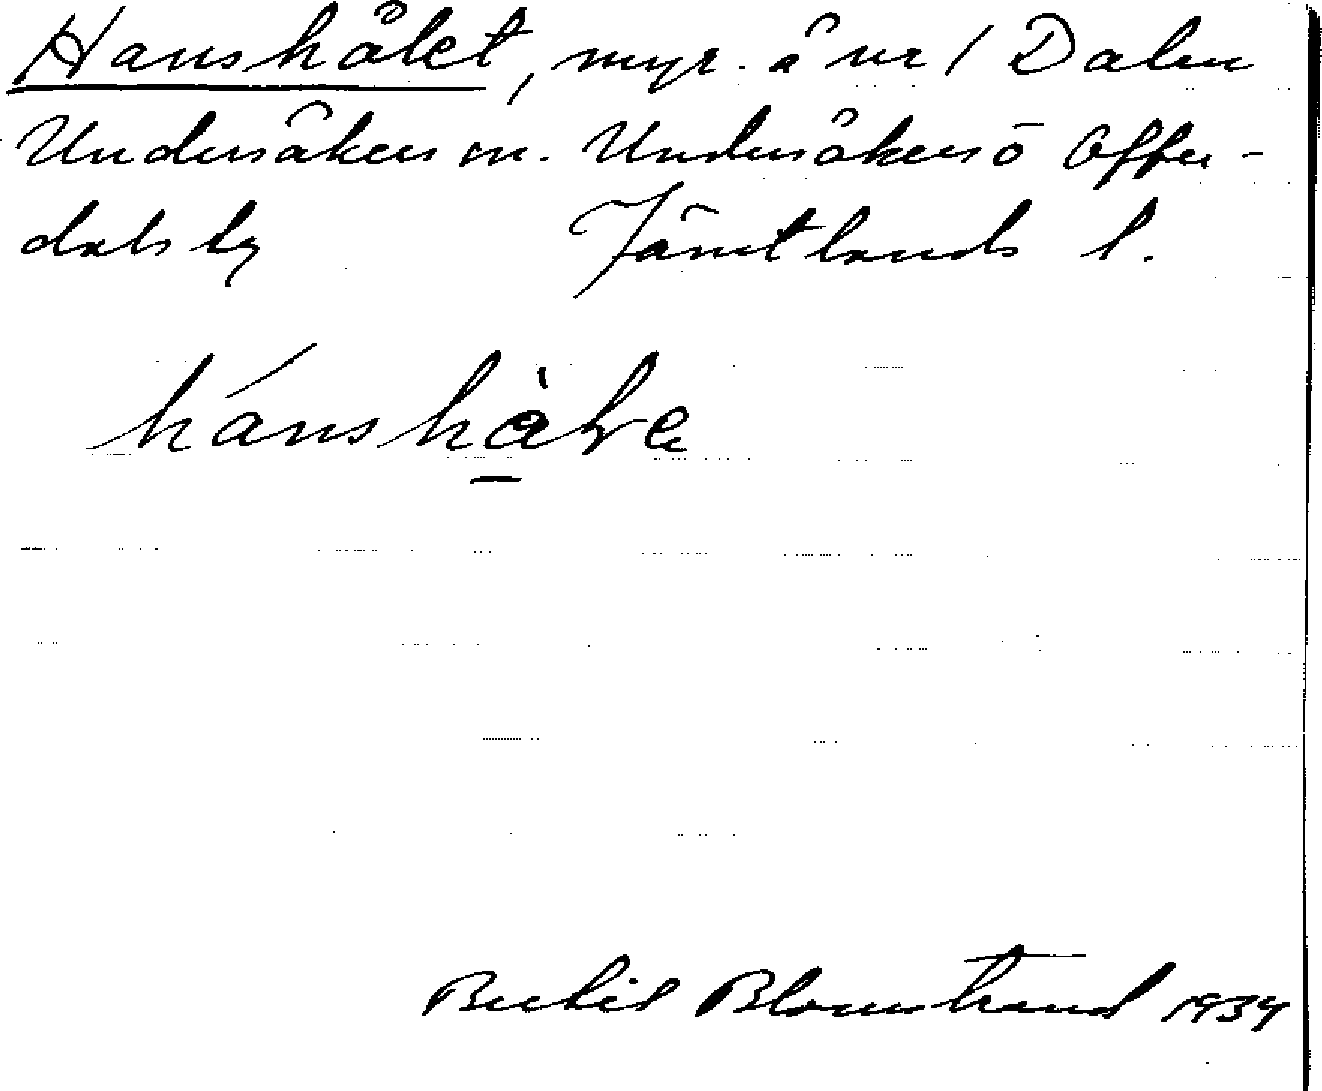 Hanshålet, myr. å nr 1 Dalen
Undersåkers sn. Undersåkers o Offer-
dals tg Jämtlands l.
hánshàɫe
Bertil Blomstrand 1934